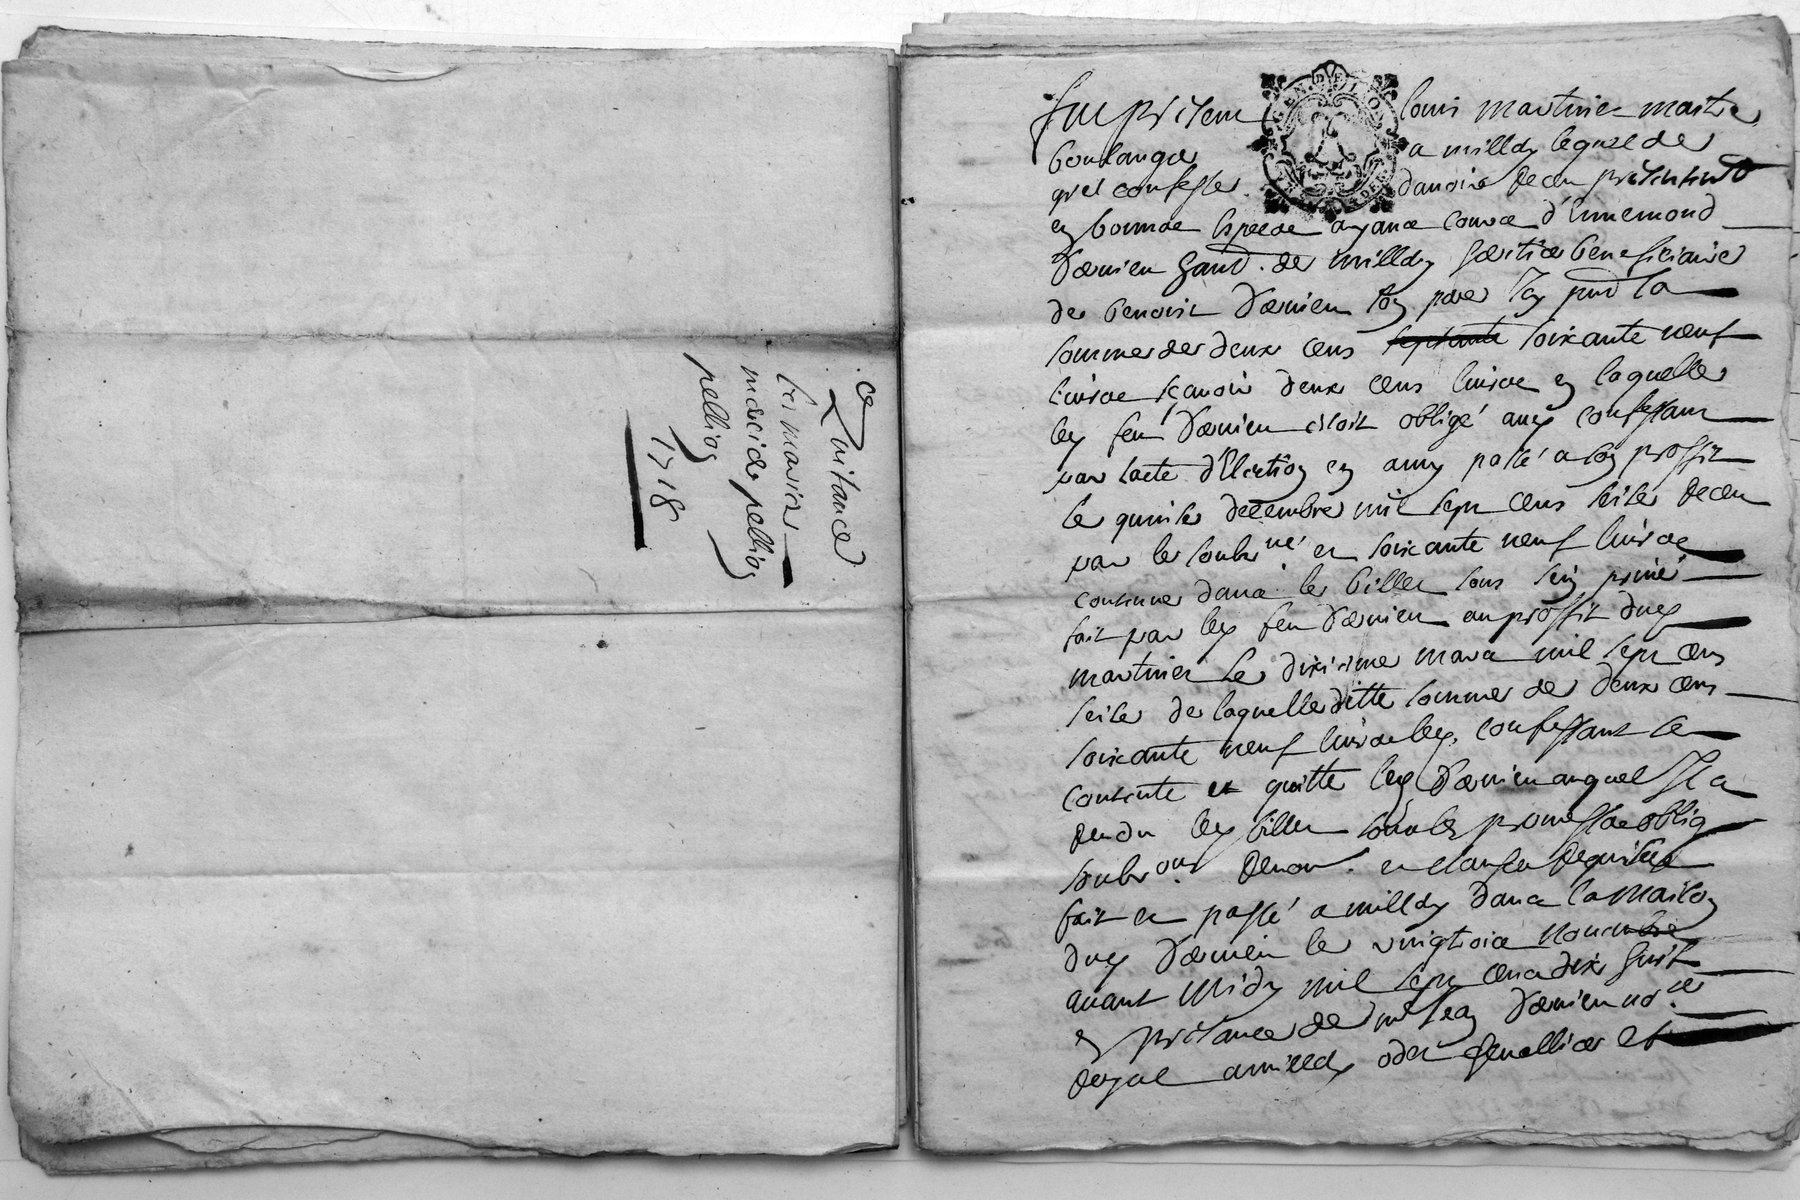 ce
Quitance
les mariez
mercier pellion
pellion
1718
GEN. DE LYON
fut present louis martinier maitre
boulanger a milldy lequel de
gret confesse d'avoir receu presentement
en bonnes especes ayant cours d'Ennemond
Darnieu hand. de milldy heritier beneficiaire
de benoist Darnieu son pere icy pnt la
somme de deux cens soixante neuf
livres sçavoir deux cens livres en laquelle
led feu Darnieu estoit obligé aud confessant
par lacte d'Election en amy passé a son proffit
le quinse decembre mil sept cens seise receu
par le soubsné et soixante neuf livres
contenue dans le billet sous sein privé
fait par led feu Darnieu au proffit dud
martinier le dixieme mars mil sept cens
seise de laquelle ditte somme de deux cens
soixante neuf livres led. confessant se
contente et quitte led Darnieu auquel Il a
rendu led billet soubs promesses oblig
soubsons renon. et clauses requises
fait et passé a milldy dans la Maison
dud Darnieu le vingtrois Novembre
avant Midy mil sept cens dix huit
en presance de me Jean Darnieu nore
royal a milldy et